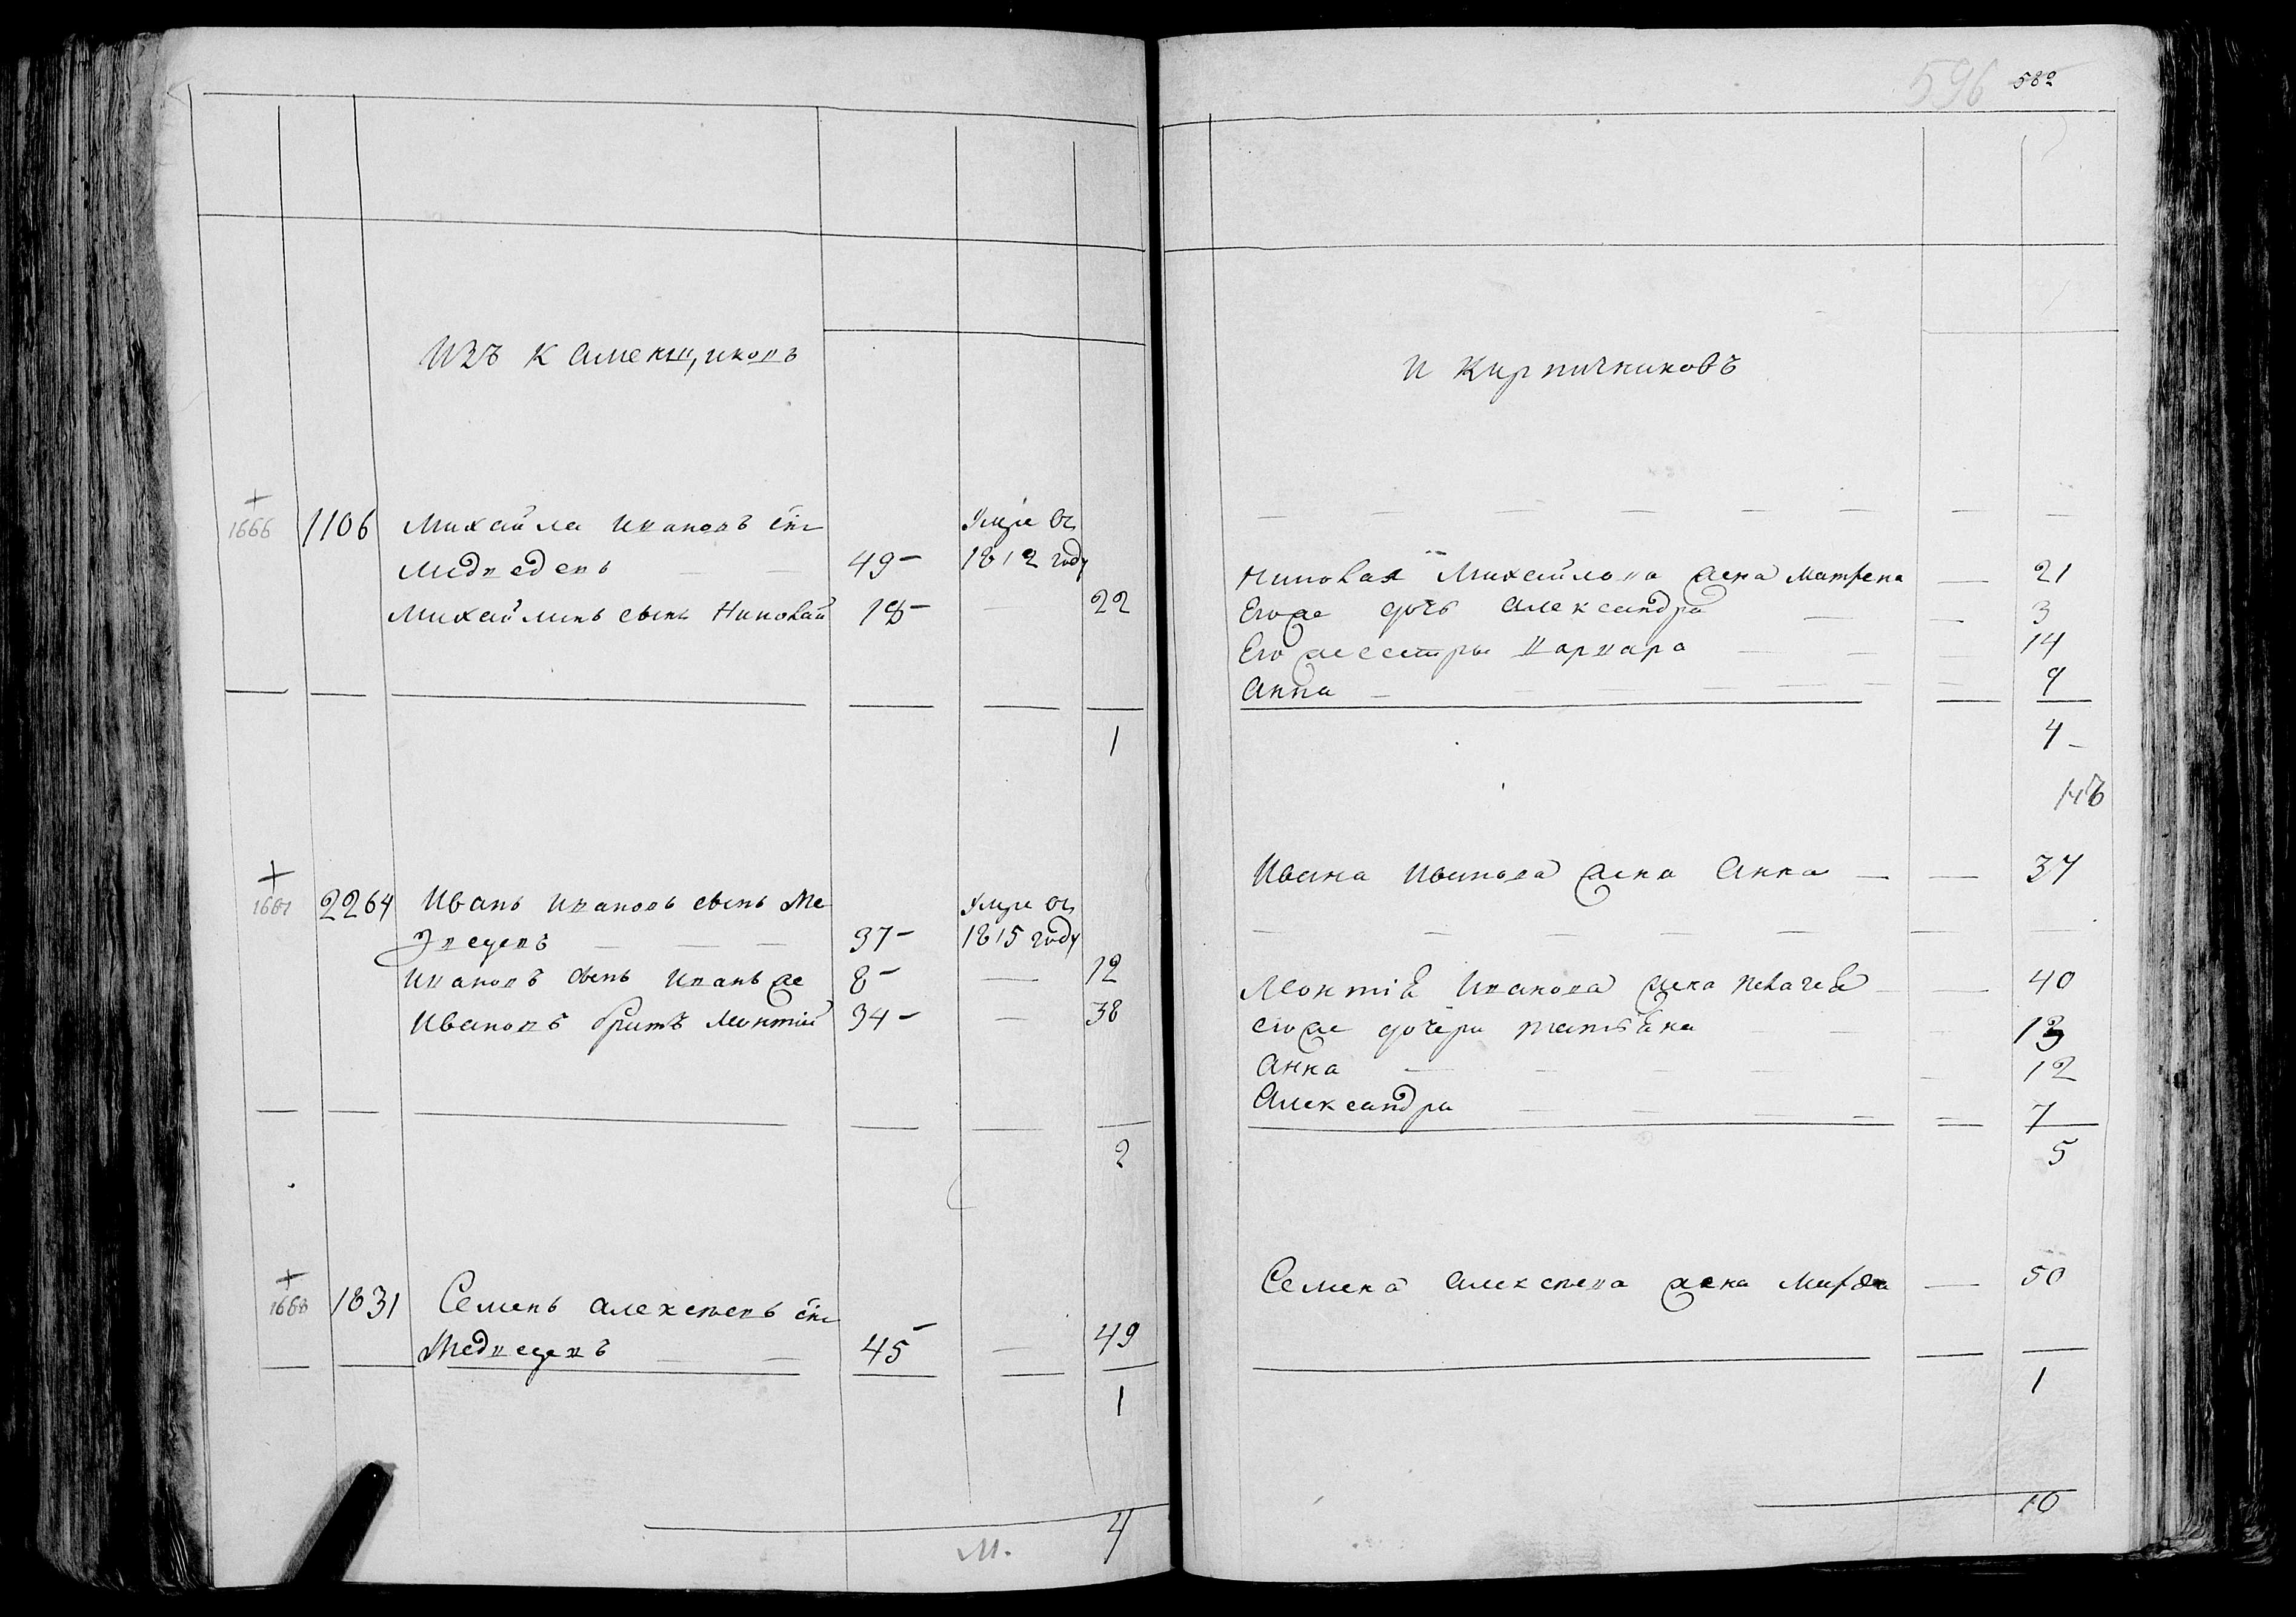 596 582
Изъ Каменщиковъ
1666 1106 Михайла Ивановъ снъ Умре въ
Медведевъ — — 49 — 1812 году
Михайлинъ сынъ Николай 18 — — 22
1
1667 2264 Иванъ Ивановъ сынъ Ме Умре въ
дведевъ — — — 37 — 1815 году
Ивановъ сынъ Иванъ же 8 — — 12
Ивановъ братъ Леонтий 34 — — 38
2
1668 1831 Семенъ Алексеевъ снъ
Медведевъ — — 45 — — 49
1
4
М.
И Кирпичниковъ
Николая Михайлова жена Матрена — 21
Егоже дочь Александра — — 3
Его же сестры Варвара — — 14
Анна — — — — — — 9
4 —
Ивана Иванова жена Анна — — 37
Леонтия Иванова жена Пелагея — — 40
егоже дочери Татьяна — — 13
Анна — — — — — 12
Александра — — — — — 7
5
Семена Алексеева жена Марфа — 50
1
10